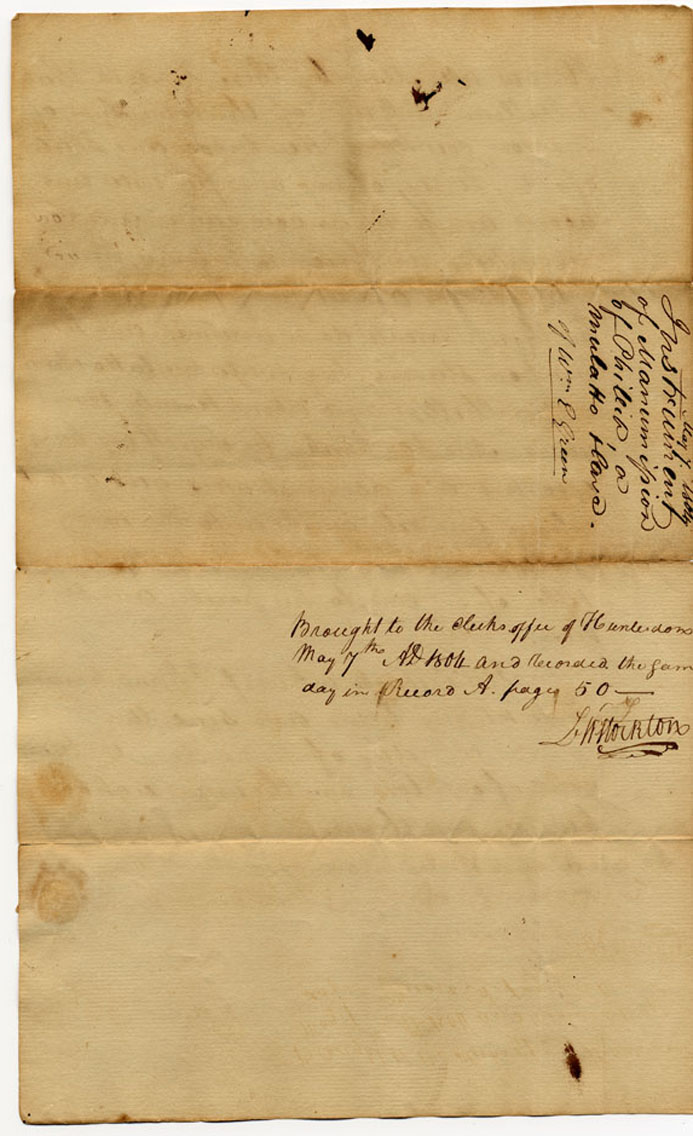 May 7. 1804
Instrument
of Manumission
of Phillis a
Mulatto Slave.
of Wm E Green
Brought to the Clerks office of Hunterdon
May 7th AD 1804 and recorded the Sam
day in Record A. page 50 —
Stockton